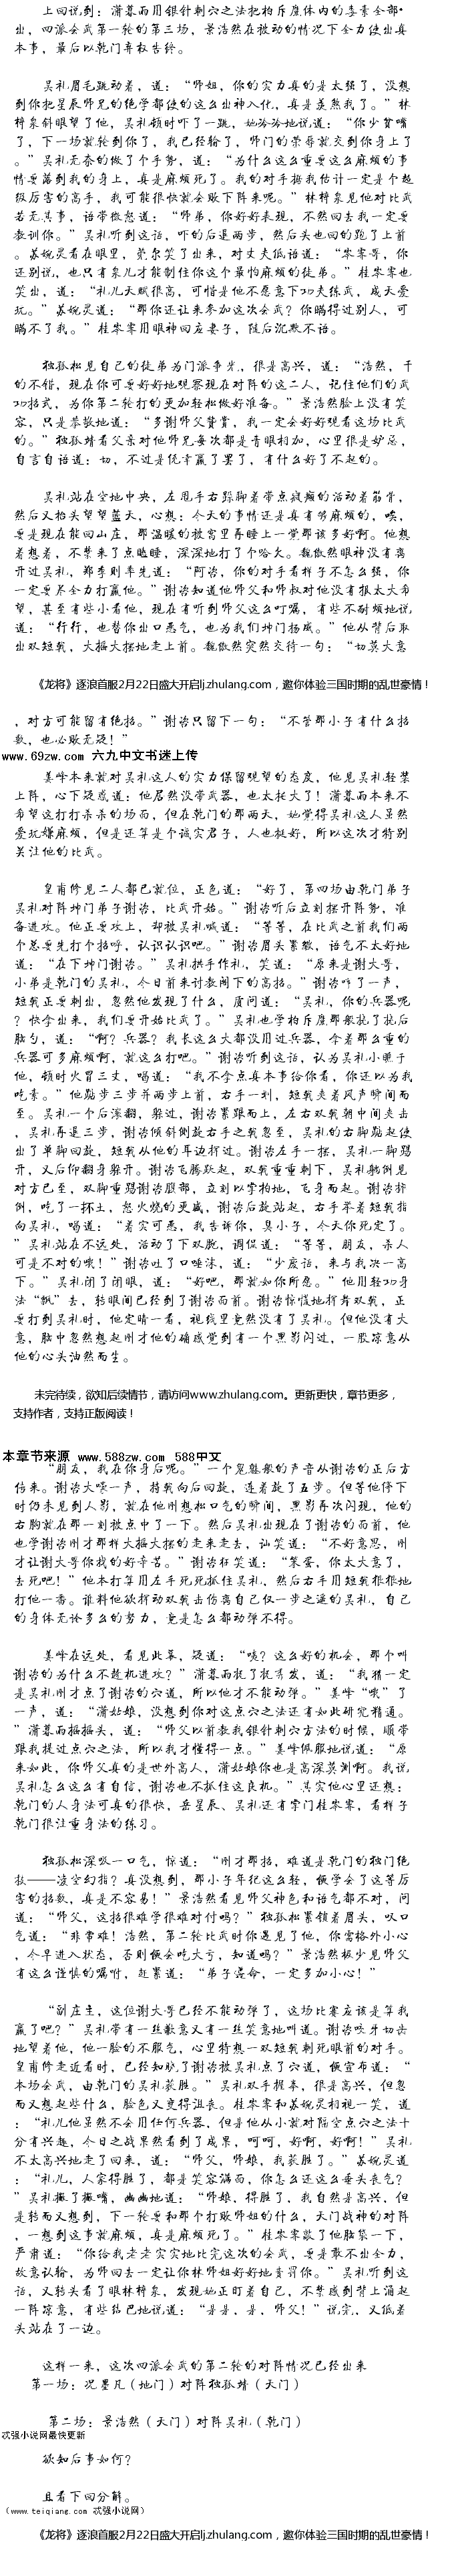 上回说到：潇暮雨用银针刺穴之法把柏斥麾体内的毒素全部*
出，四派会武第一轮的第三场，景浩然在被动的情况下全力使出真
本事，最后以乾门弃权告终。
吴礼眉毛跳动着，道：“师姐，你的实力真的是太强了，没想
到你把星辰师兄的绝学都使的这么出神入化，真是羡煞我了。”林
梓泉斜眼望了他，吴礼顿时吓了一跳，她冷冷地说道：“你少贫嘴
了，下一场就轮到你了，我已经输了，师门的荣辱就交到你身上了
。”吴礼无奈的做了个手势，道：“为什么这么重要这么麻烦的事
情要落到我的身上，真是麻烦死了。我的对手据我估计一定是个超
级厉害的高手，我可能很快就会败下阵来呢。”林梓泉见他对比武
若无其事，语带微怒道：“师弟，你好好表现，不然回去我一定要
教训你。”吴礼听到这话，吓的后退两步，然后头也回的跑了上前
。苏婉灵看在眼里，莞尔笑了出来，对丈夫低语道：“岑寒哥，你
还别说，也只有泉儿才能制住你这个最怕麻烦的徒弟。”桂岑寒也
笑出，道：“礼儿天赋很高，可惜是他不愿意下功夫练武，成天爱
玩。”苏婉灵道：“那你还让来参加这次会武？你瞒得过别人，可
瞒不了我。”桂岑寒用眼神回应妻子，随后沉默不语。
独孤松见自己的徒弟为门派争光，很是高兴，道：“浩然，干
的不错，现在你可要好好地观察现在对阵的这二人，记住他们的武
功招式，为你第二轮打的更加轻松做好准备。”景浩然脸上没有笑
容，只是恭敬地道：“多谢师父赞赏，我一定会好好观看这场比武
的。”独孤靖看父亲对他师兄每次都是青眼相加，心里很是妒忌，
自言自语道：切，不过是侥幸赢了罢了，有什么好了不起的。
吴礼站在空地中央，左甩手右踩脚着带点疲癫的活动着筋骨，
然后又抬头望望蓝天，心想：今天的事情还是真有够麻烦的，唉，
要是现在能回山庄，那温暖的被窝里再睡上一觉那该多好啊。他想
着想着，不禁来了点瞌睡，深深地打了个哈欠。魏傲然眼神没有离
开过吴礼，郑季则率先道：“阿咨，你的对手看样子不怎么强，你
一定要尽全力打赢他。”谢咨知道他师父和师叔对他没有报太大希
望，甚至有些小看他，现在有听到师父这么叮嘱，有些不耐烦地说
道：“行行，也替你出口恶气，也为我们坤门扬威。”他从背后取
出双短戟，大摇大摆地走上前。魏傲然突然交待一句：“切莫大意
《龙将》逐浪首服2月22日盛大开启lj.zhulang.com，邀你体验三国时期的乱世豪情！
，对方可能留有绝招。”谢咨只留下一句：“不管那小子有什么招
数，也必败无疑！”
www.69zw.com 六九中文书迷上传
姜峰本来就对吴礼这人的实力保留观望的态度，他见吴礼轻装
上阵，心下疑惑道：他居然没带武器，也太托大了！潇暮雨本来不
希望这打打杀杀的场面，但在乾门的那两天，她觉得吴礼这人虽然
爱玩嫌麻烦，但是还算是个诚实君子，人也挺好，所以这次才特别
关注他的比武。
皇甫修见二人都已就位，正色道：“好了，第四场由乾门弟子
吴礼对阵坤门弟子谢咨，比武开始。”谢咨听后立刻摆开阵势，准
备进攻。他正要攻上，却被吴礼喊道：“等等，在比武之前我们两
个总要先打个招呼，认识认识吧。”谢咨眉头紧皱，语气不太好地
道：“在下坤门谢咨。”吴礼拱手作礼，笑道：“原来是谢大哥，
小弟是乾门的吴礼，今日前来讨教阁下的高招。”谢咨哼了一声，
短戟正要刺出，忽然他发现了什么，质问道：“吴礼，你的兵器呢
？快拿出来，我们要开始比武了。”吴礼也学柏斥麾那般挠了挠后
脑勺，道：“啊？兵器？我长这么大都没用过兵器，拿着那么重的
兵器可多麻烦啊，就这么打吧。”谢咨听到这话，认为吴礼小瞧了
他，顿时火冒三丈，喝道：“我不拿点真本事给你看，你还以为我
吃素。”他踏步三步并两步上前，右手一刺，短戟夹着风声瞬间而
至。吴礼一个后滚翻，躲过，谢咨紧跟而上，左右双戟朝中间夹击
，吴礼再退三步，谢咨倾斜倒数右手之戟忽至，吴礼的右脚踮起使
出了单脚回旋，短戟从他的耳边擦过。谢咨左手一摆，吴礼一脚踢
开，又后仰翻身躲开。谢咨飞腾跃起，双戟重重刺下，吴礼躺倒见
对方已至，双脚重踢谢咨腹部，立刻以掌拍地，飞身而起。谢咨摔
倒，吃了一抔土，怒火烧的更盛，谢咨后旋站起，右手举着短戟指
向吴礼，喝道：“着实可恶，我告诉你，臭小子，今天你死定了。
”吴礼站在不远处，活动了下双腕，调侃道：“等等，朋友，杀人
可是不对的哦！”谢咨吐了口唾沫，道：“少废话，来与我决一高
下。”吴礼闭了闭眼，道：“好吧，那就如你所愿。”他用轻功身
法“飘”去，转眼间已经到了谢咨面前。谢咨惊慌地挥着双戟，正
要打到吴礼时，他定睛一看，视线里竟然没有了吴礼。但他没有大
意，脑中忽然想起刚才他的确感觉到有一个黑影闪过，一股凉意从
他的心头油然而生。
未完待续，欲知后续情节，请访问www.zhulang.com。更新更快，章节更多，
支持作者，支持正版阅读！
本章节来源 www.588zw.com 588中文
“朋友，我在你身后呢。”一个鬼魅般的声音从谢咨的正后方
传来。谢咨大喊一声，持戟向后回旋，连着旋了五步。但等他停下
时仍未见到人影，就在他刚想松口气的瞬间，黑影再次闪现，他的
右胸就在那一刹被点中了一下。然后吴礼出现在了谢咨的面前，他
也学谢咨刚才那样大摇大摆的走来走去，讪笑道：“不好意思，刚
才让谢大哥你找的好辛苦。”谢咨狂笑道：“笨蛋，你太大意了，
去死吧！”他本打算用左手死死抓住吴礼，然后右手用短戟狠狠地
打他一番。谁料他欲挥动双戟去伤离自己仅一步之遥的吴礼，自己
的身体无论多么的努力，竟是怎么都动弹不得。
姜峰在远处，看见此幕，疑道：“咦？这么好的机会，那个叫
谢咨的为什么不趁机进攻？”潇暮雨捋了捋秀发，道：“我猜一定
是吴礼刚才点了谢咨的穴道，所以他才不能动弹。”姜峰“哦”了
一声，道：“潇姑娘，没想到你对这点穴之法还有如此研究精通。
”潇暮雨摇摇头，道：“师父以前教我银针刺穴方法的时候，顺带
跟我提过点穴之法，所以我才懂得一点。”姜峰佩服地说道：“原
来如此，你师父真的是世外高人，潇姑娘你也是高深莫测啊。我说
吴礼怎么这么有自信，谢咨也不抓住这良机。”其实他心里还想：
乾门的人身法可真的很快，岳星辰、吴礼还有掌门桂岑寒，看样子
乾门很注重身法的练习。
独孤松深吸一口气，惊道：“刚才那招，难道是乾门的独门绝
技——凌空幻指？真没想到，那小子年纪这么轻，便学会了这等厉
害的招数，真是不容易！”景浩然看见师父神色和语气都不对，问
道：“师父，这招很难学很难对付吗？”独孤松紧锁着眉头，叹口
气道：“非常难！浩然，第二轮比武时你遇见了他，你需格外小心
，今早进入状态，否则便会吃大亏，知道吗？”景浩然极少见师父
有这么谨慎的嘱咐，赶紧道：“弟子遵命，一定多加小心！”
“副庄主，这位谢大哥已经不能动弹了，这场比赛应该是算我
赢了吧？”吴礼带有一丝歉意又有一丝笑意地叫道。谢咨咬牙切齿
地望着他，他一脸的不服气，心里特想一双短戟刺死眼前的对手。
皇甫修走近看时，已经知晓了谢咨被吴礼点了穴道，便宣布道：“
本场会武，由乾门的吴礼获胜。”吴礼双手握拳，很是高兴，但忽
而又想起些什么，脸色又变得沮丧。桂岑寒和苏婉灵相视一笑，道
：“礼儿他虽然不会用任何兵器，但是他从小就对隔空点穴之法十
分有兴趣，今日之战果然看到了成果，呵呵，好啊，好啊！”吴礼
不太高兴地走了回来，道：“师父，师娘，我获胜了。”苏婉灵道
：“礼儿，人家得胜了，都是笑容满面，你怎么还这么垂头丧气？
”吴礼撅了撅嘴，幽幽地道：“师娘，得胜了，我自然是高兴，但
是转而又想到，下一轮要和那个打败师姐的什么，天门战神的对阵
，一想到这事就麻烦，真是麻烦死了。”桂岑寒敲了他脑袋一下，
严肃道：“你给我老老实实地比完这次的会武，要是敢不出全力，
故意认输，为师回去一定让你林师姐好好地责罚你。”吴礼听到这
话，又转头看了眼林梓泉，发现她正盯着自己，不禁感到背上涌起
一阵凉意，有些结巴地说道：“是是、是，师父！”说完，又低着
头站在了一边。
这样一来，这次四派会武的第二轮的对阵情况已经出来
第一场：况星凡（地门）对阵独孤靖（天门）
第二场：景浩然（天门）对阵吴礼（乾门）
忒强小说网最快更新
欲知后事如何？
且看下回分解。
（www.teiqiang.com 忒强小说网）
《龙将》逐浪首服2月22日盛大开启lj.zhulang.com，邀你体验三国时期的乱世豪情！